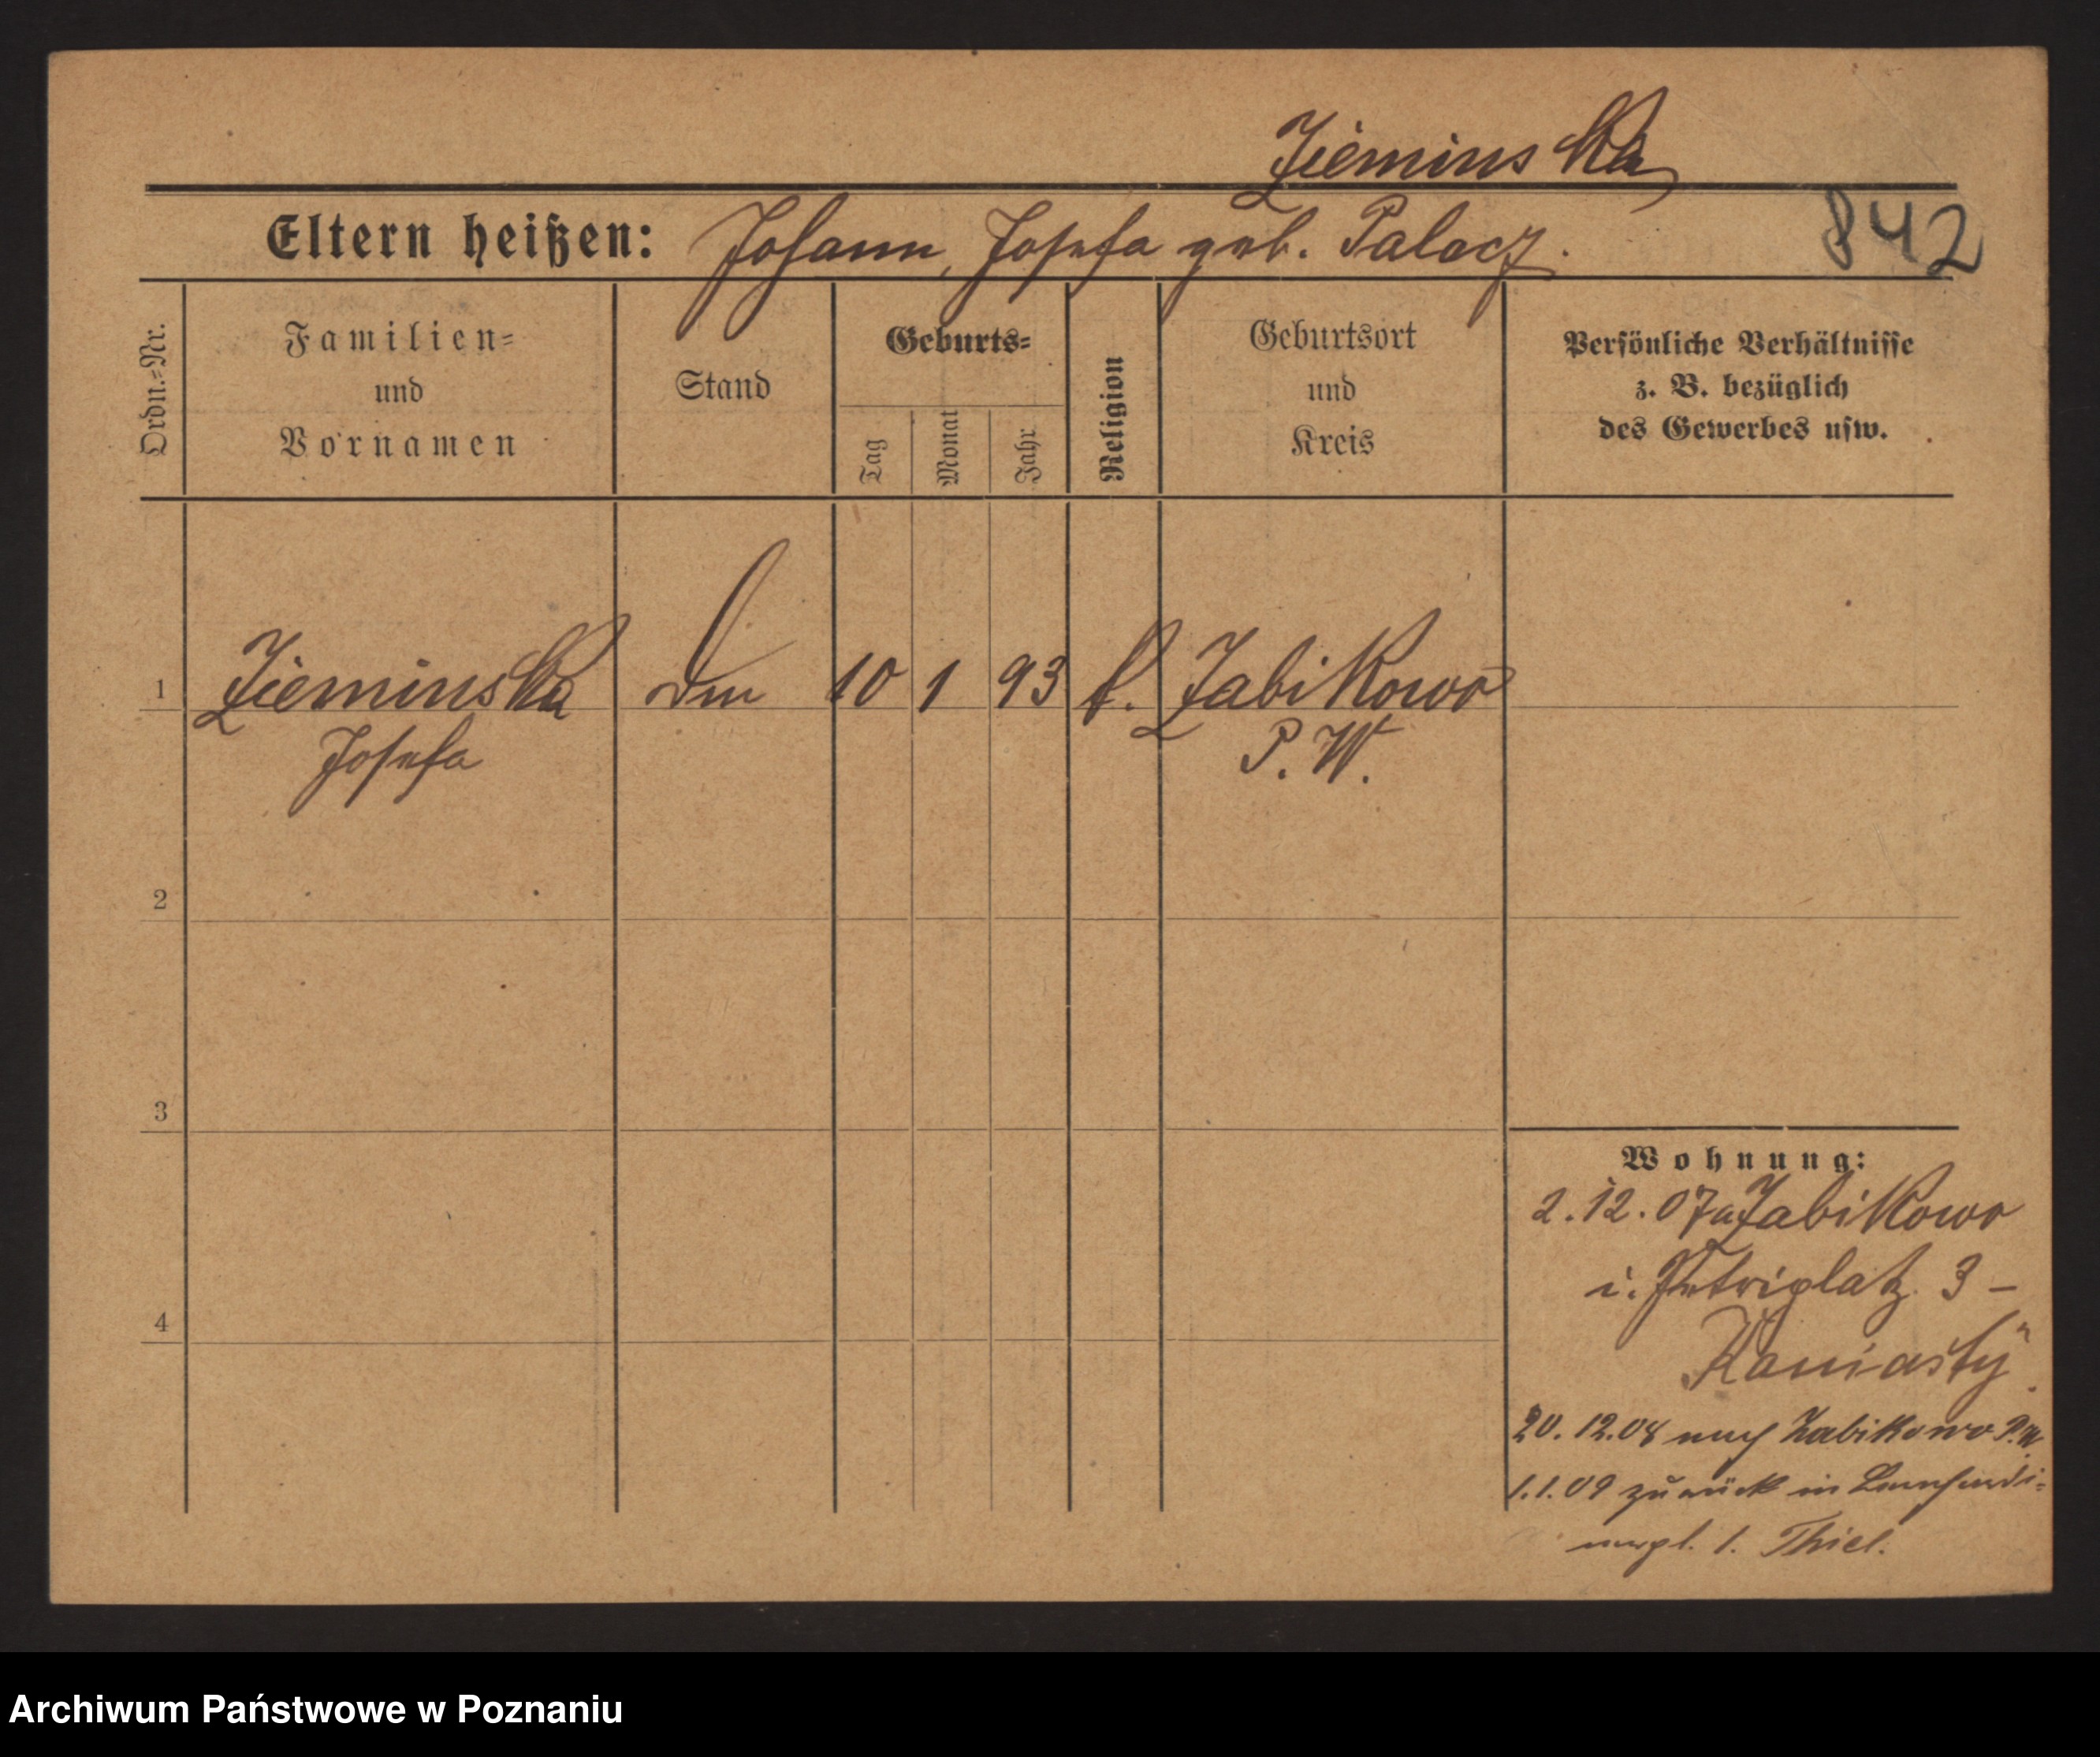 Zieminska
Eltern heißen: Johann, Josefa geb. Palacz.
842
Ordn.=Nr.
Familien=
und
Vornamen
Stand
Geburts=
Tag
Monat
Jahr
Religion
Geburtsort
und
Kreis
Persönliche Verhältnisse
z. B. bezüglich
des Gewerbes usw.
1 Zieminska 10 1 93 k. Zabikowo
Josefa P. W.
2
3
4
Wohnung:
2.12.07 a Zabikowo
i. Petriplatz 3 –
Koniasty
20.12.08 nach Zabikowo P.W
1.1.09 zurück in
1. Thiel.
Archiwum Państwowe w Poznaniu